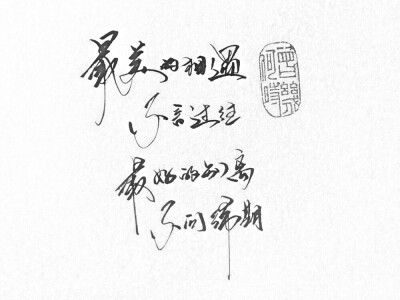 最美的相遇
不言过往
最好的别离
不问归期